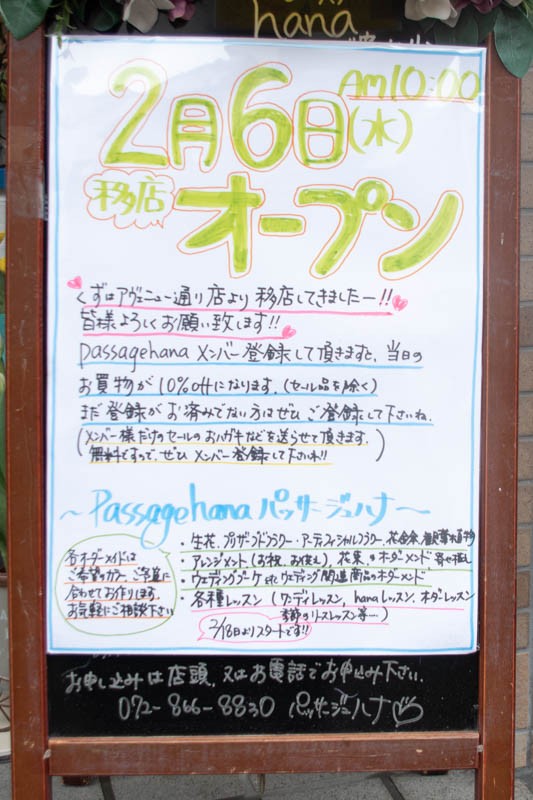 hana
AM10:00
2月6日(水)
移店
オープン
くずはアヴェニュー通り店より移店してきましたー!!
皆様よろしくお願い致します!!
passagehana メンバー登録して頂きますと、当日の
お買物が10%offになります。(セール品を除く)
まだ登録がお済みでない方はぜひご登録して下さいね。
(メンバー様だけのセールのおハガキなどを送らせて頂きます。
無料ですので、ぜひメンバー登録して下さいね!!)
~Passagehana パッサージュハナ~
・生花、プリザーブドフラワー・アーティフィシャルフラワー、花金魚、観葉植物
・アレンジメント(お祝、お供え)、花束のオーダーメンド 寄せ植え
・ウェディングブーケ etc ウェディング関連商品のオーダーメンド
・各種レッスン(ワンデイレッスン、hanaレッスン、オーダーレッスン
季節のリースレッスン等…)
2/18日よりスタートです!!
各オーダーメイドは
ご希望のカラー、ご予算に
合わせてお作りします。
お気軽にご相談下さい
お申し込みは店頭、又はお電話でお申込み下さい。
072-866-8830 パッサージュハナ♡